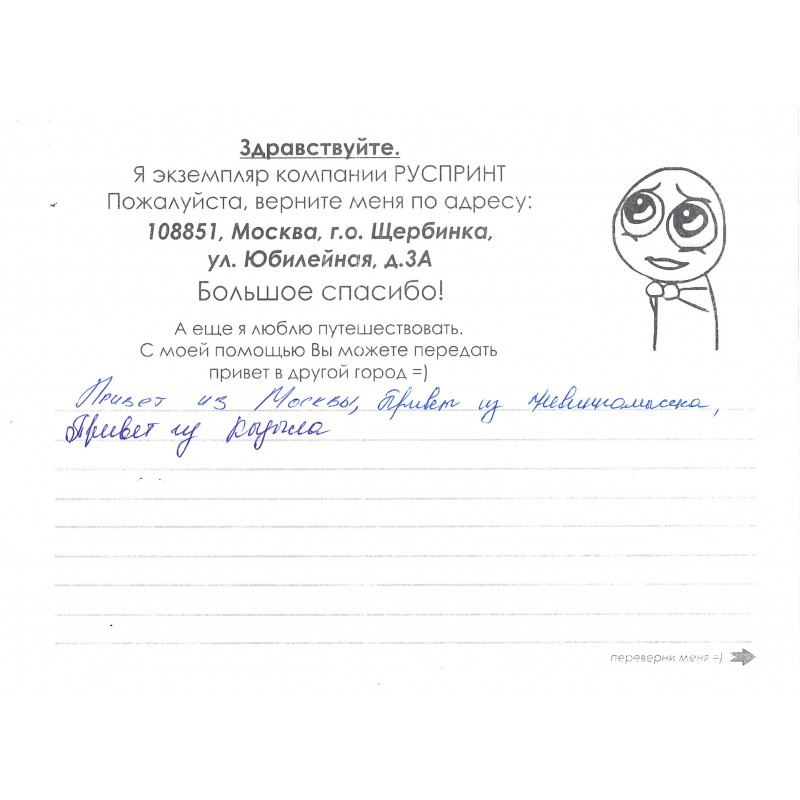 Здравствуйте.
Я экземпляр компании РУСПРИНТ
Пожалуйста, верните меня по адресу:
108851, Москва, г.о. Щербинка,
ул. Юбилейная, д.3А
Большое спасибо!
А еще я люблю путешествовать.
С моей помощью Вы можете передать
привет в другой город =)
Привет из Москвы, Привет из Невинномысска,
Привет из Кызыла
переверни меня =)